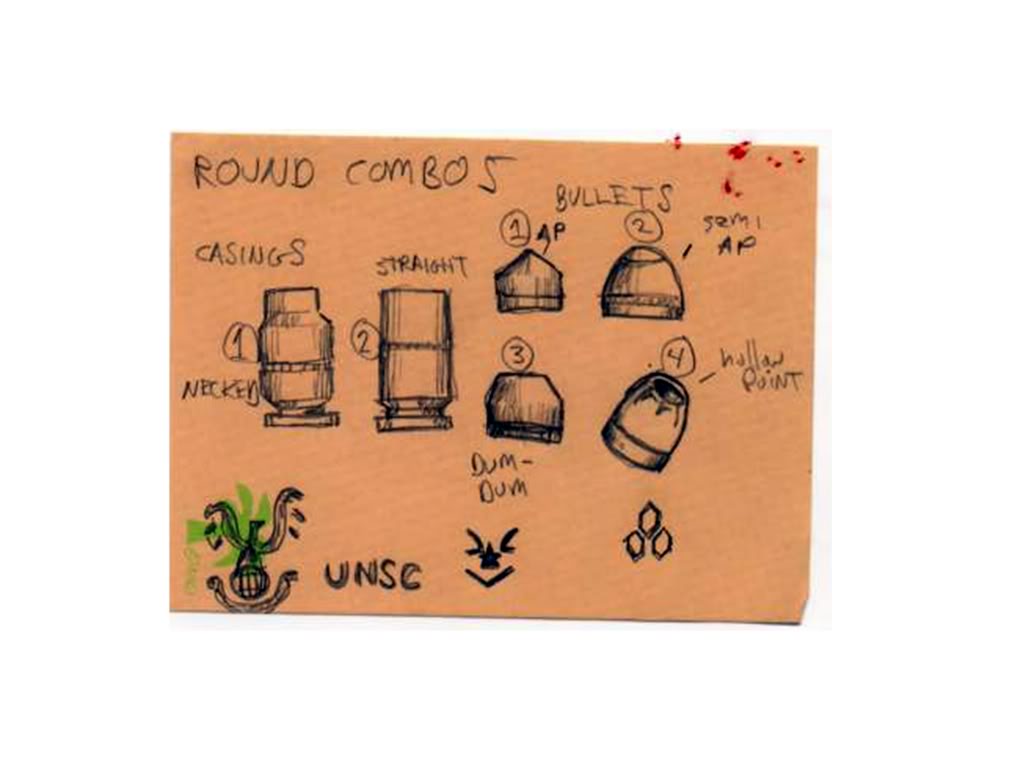 ROUND COMBOS
BULLETS
1 AP
2
semi
AP
CASINGS
STRAIGHT
1
2
NECKED
3
4
hollow
POINT
DUM-
DUM
UNSC